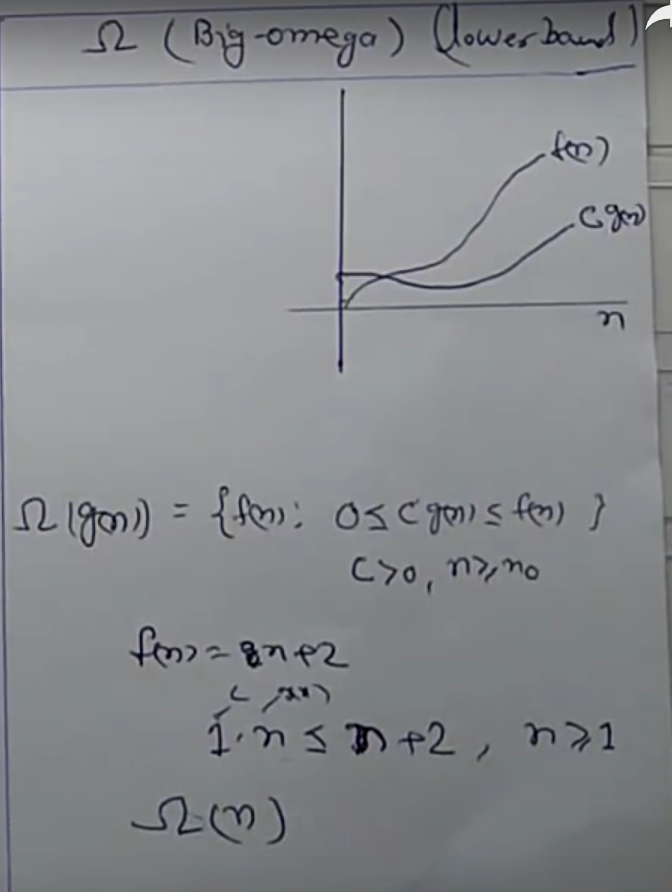 Ω (Big-omega) (lower bound)
f(n)
c g(n)
n
Ω(g(n)) = {f(n): 0 ≤ c g(n) ≤ f(n) }
c>0, n≥n0
f(n) = n+2
c
1.n ≤ n+2, n≥1
Ω(n)